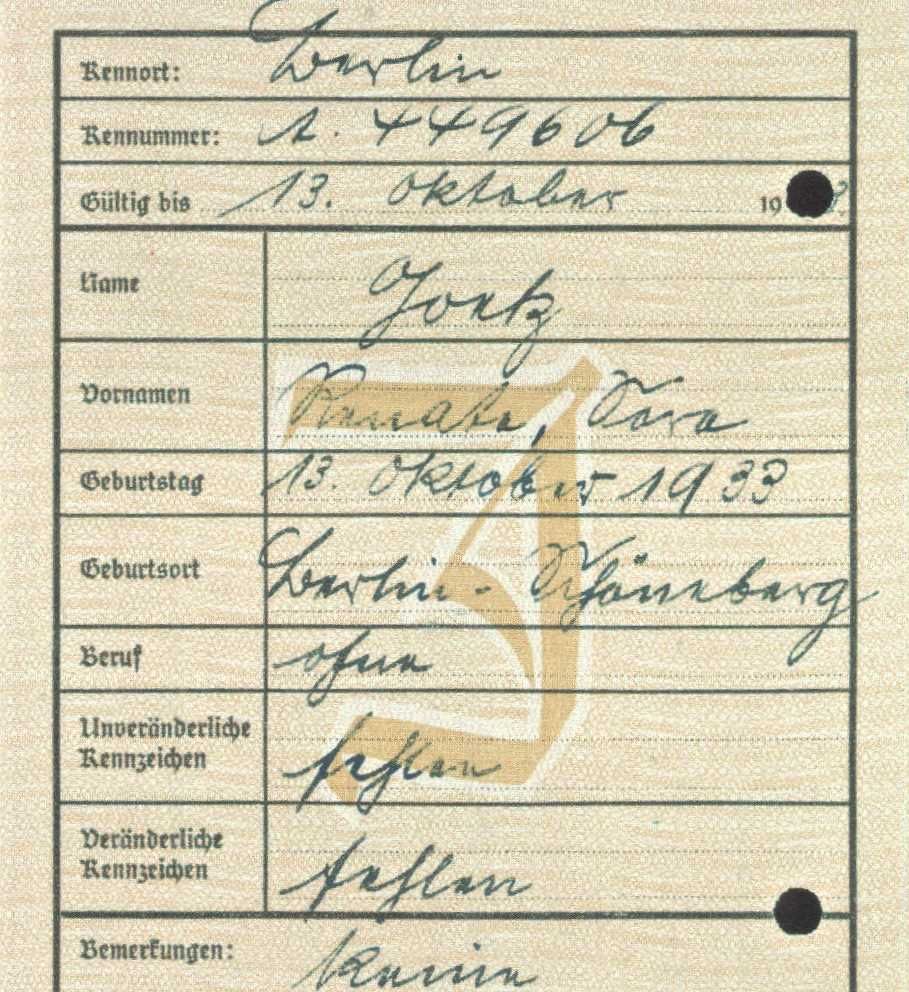 Kennort: Berlin
Kennummer: A. 449606
Gültig bis 13. Oktober 19
Name
Vornamen Renate, Sara
Geburtstag 13. Oktober 1933
Geburtsort Berlin-Schöneberg
Beruf ohne
Unveränderliche
Kennzeichen fehlen
Veränderliche
Kennzeichen fehlen
Bemerkungen: Keine
J